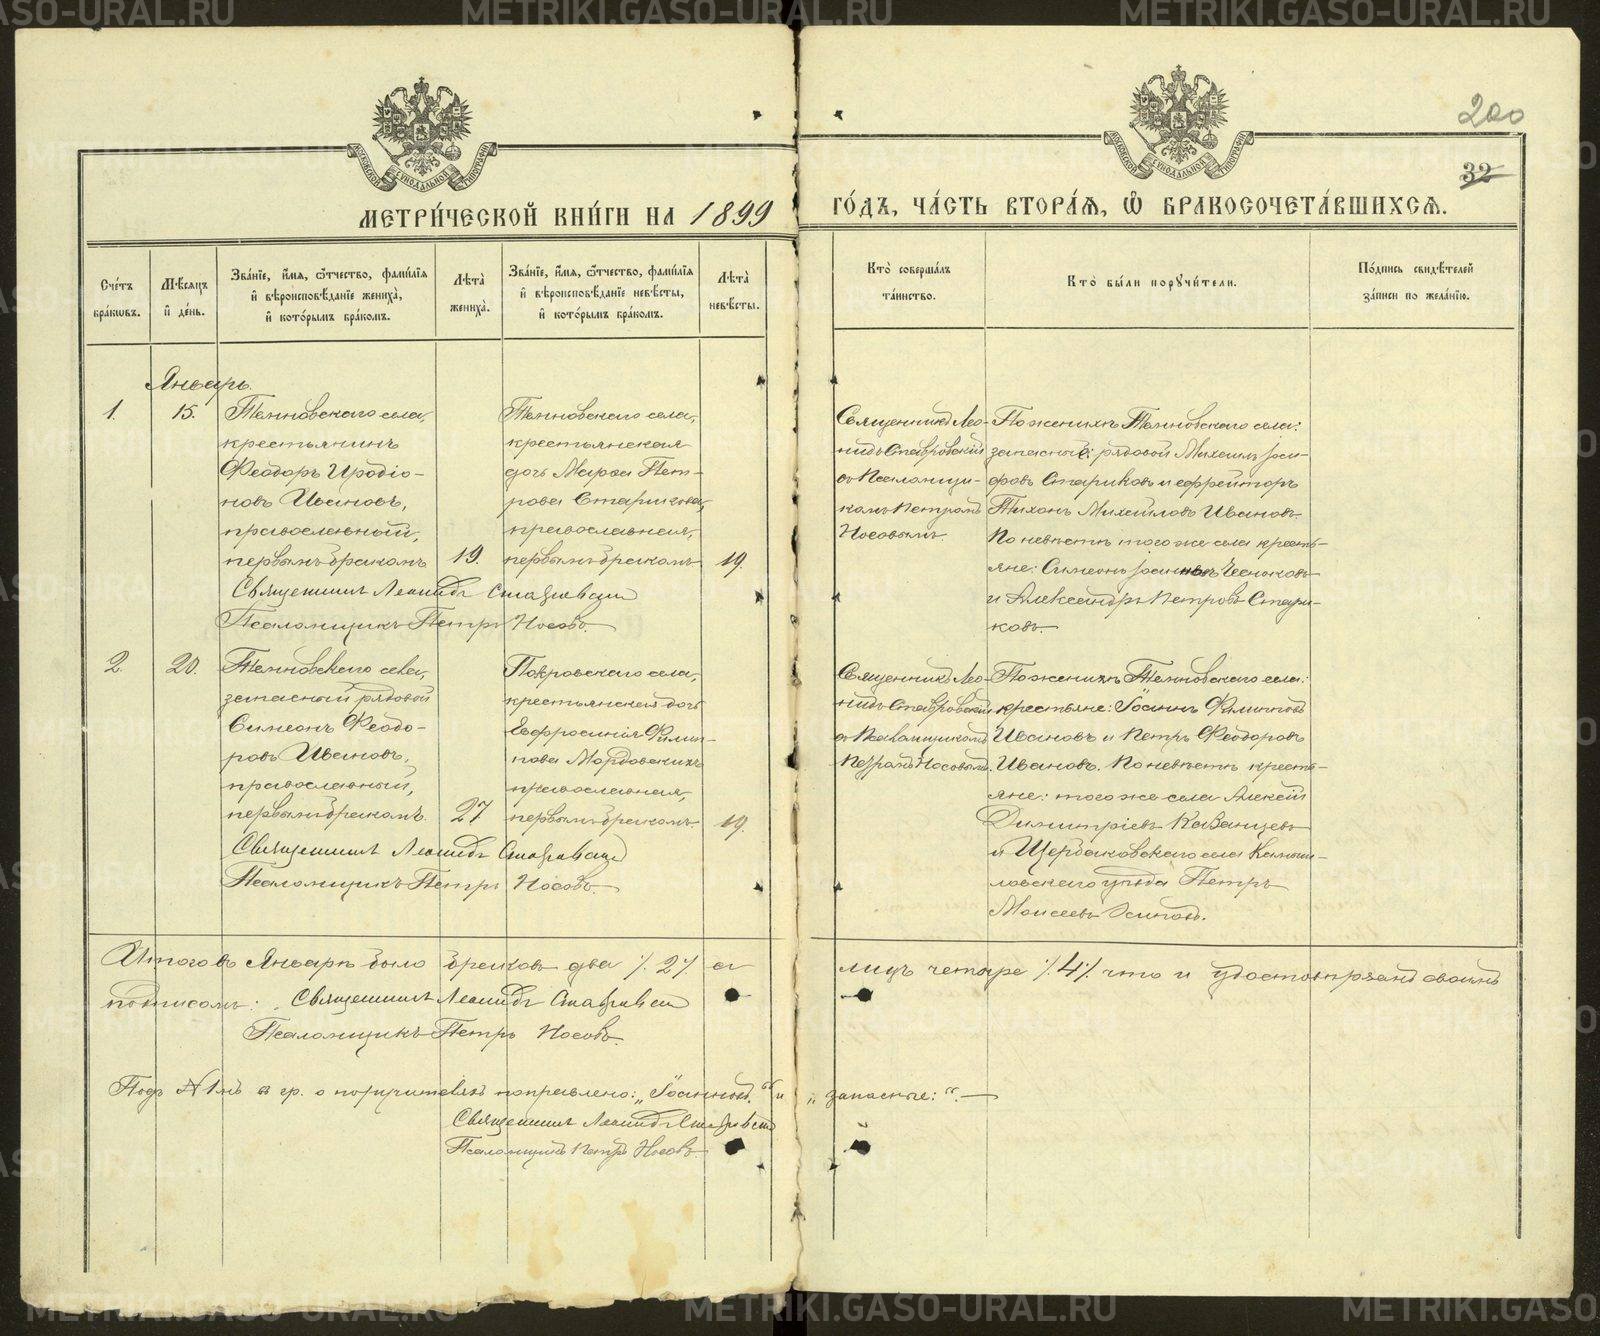 METRIKI.GASO-URAL.RU
200
32
МЕТРИ́ЧЕСКОЙ КНИ́ГИ НА 1899 ГО́ДЪ, ЧА́СТЬ ВТОРА́Ѧ, Ѽ БРАКОСОЧЕТА́ВШИХСѦ.
Сче́тъ бра́кѡвъ.
Мѣ́сѧцъ и҆ де́нь.
Зва́нїе, и҆́мѧ, ѻ҆́тчество, фами́лїѧ
и҆ вѣроисповѣ́данїе жениха̀,
и҆ кото́рымъ бра́комъ.
Лѣта̀ жениха̀.
Зва́нїе, и҆́мѧ, ѻ҆́тчество, фами́лїѧ
и҆ вѣроисповѣ́данїе невѣ́сты,
и҆ кото́рымъ бра́комъ.
Лѣта̀ невѣ́сты.
Кто̀ соверша́лъ
та́инство.
Кто̀ бы́ли порꙋчи́тели.
По́дпись свидѣ́телей
за́писи по жела́нїю.
Январь.
1.
15.
Темновскаго села,
крестьянинъ
Феодоръ Иродіо-
новъ Ивановъ,
православный,
первымъ бракомъ
19.
Темновскаго села,
крестьянская
дочь Марѳа Пет-
рова Старикова,
православная,
первымъ бракомъ
19.
Священникъ Леонидъ Ставровскій
Псаломщикъ Петръ Носовъ.
Священникъ Лео-
нидъ Ставровскій
съ Псаломщи-
комъ Петромъ
Носовымъ.
По женихѣ Темновскаго села:
запасные: рядовой Михаилъ
Стариковъ и ефрейторъ
Тихонъ Михайловъ Ивановъ.
По невѣстѣ того же села кресть-
яне: Симеонъ Чесноковъ
и Александръ Петровъ Стари-
ковъ.
2.
20.
Темновскаго села,
запасный рядовой
Симеонъ Феодо-
ровъ Ивановъ,
православный,
первымъ бракомъ.
27
Покровскаго села,
крестьянская дочь
Евфросинія Филип-
пова Мордовскихъ
православная,
первымъ бракомъ.
19.
Священникъ Леонидъ Ставровскій
Псаломщикъ Петръ Носовъ.
Священникъ Лео-
нидъ Ставровскій
съ Псаломщикомъ
Петромъ Носовымъ.
По женихѣ Темновскаго села:
крестьяне: Іоаннъ Филипповъ
Ивановъ и Петръ Феодоровъ
Ивановъ. По невѣстѣ кресть-
яне: того же села Алексій
Димитріевъ Казанцевъ
и Щербаковскаго села Камыш-
ловскаго уѣзда Петръ
Моисеевъ Осиповъ.
Итого въ Январѣ было браковъ два /.2./ а лицъ четыре /.4./ что и удостовѣряемъ своимъ
подписомъ: Священникъ Леонидъ Ставровскій
Псаломщикъ Петръ Носовъ.
Подъ №1мъ въ гр. о поручителяхъ поправлено: „Іоанновъ.“ и „запасные:“.—
Священникъ Леонидъ Ставровскій
Псаломщикъ Петръ Носовъ.